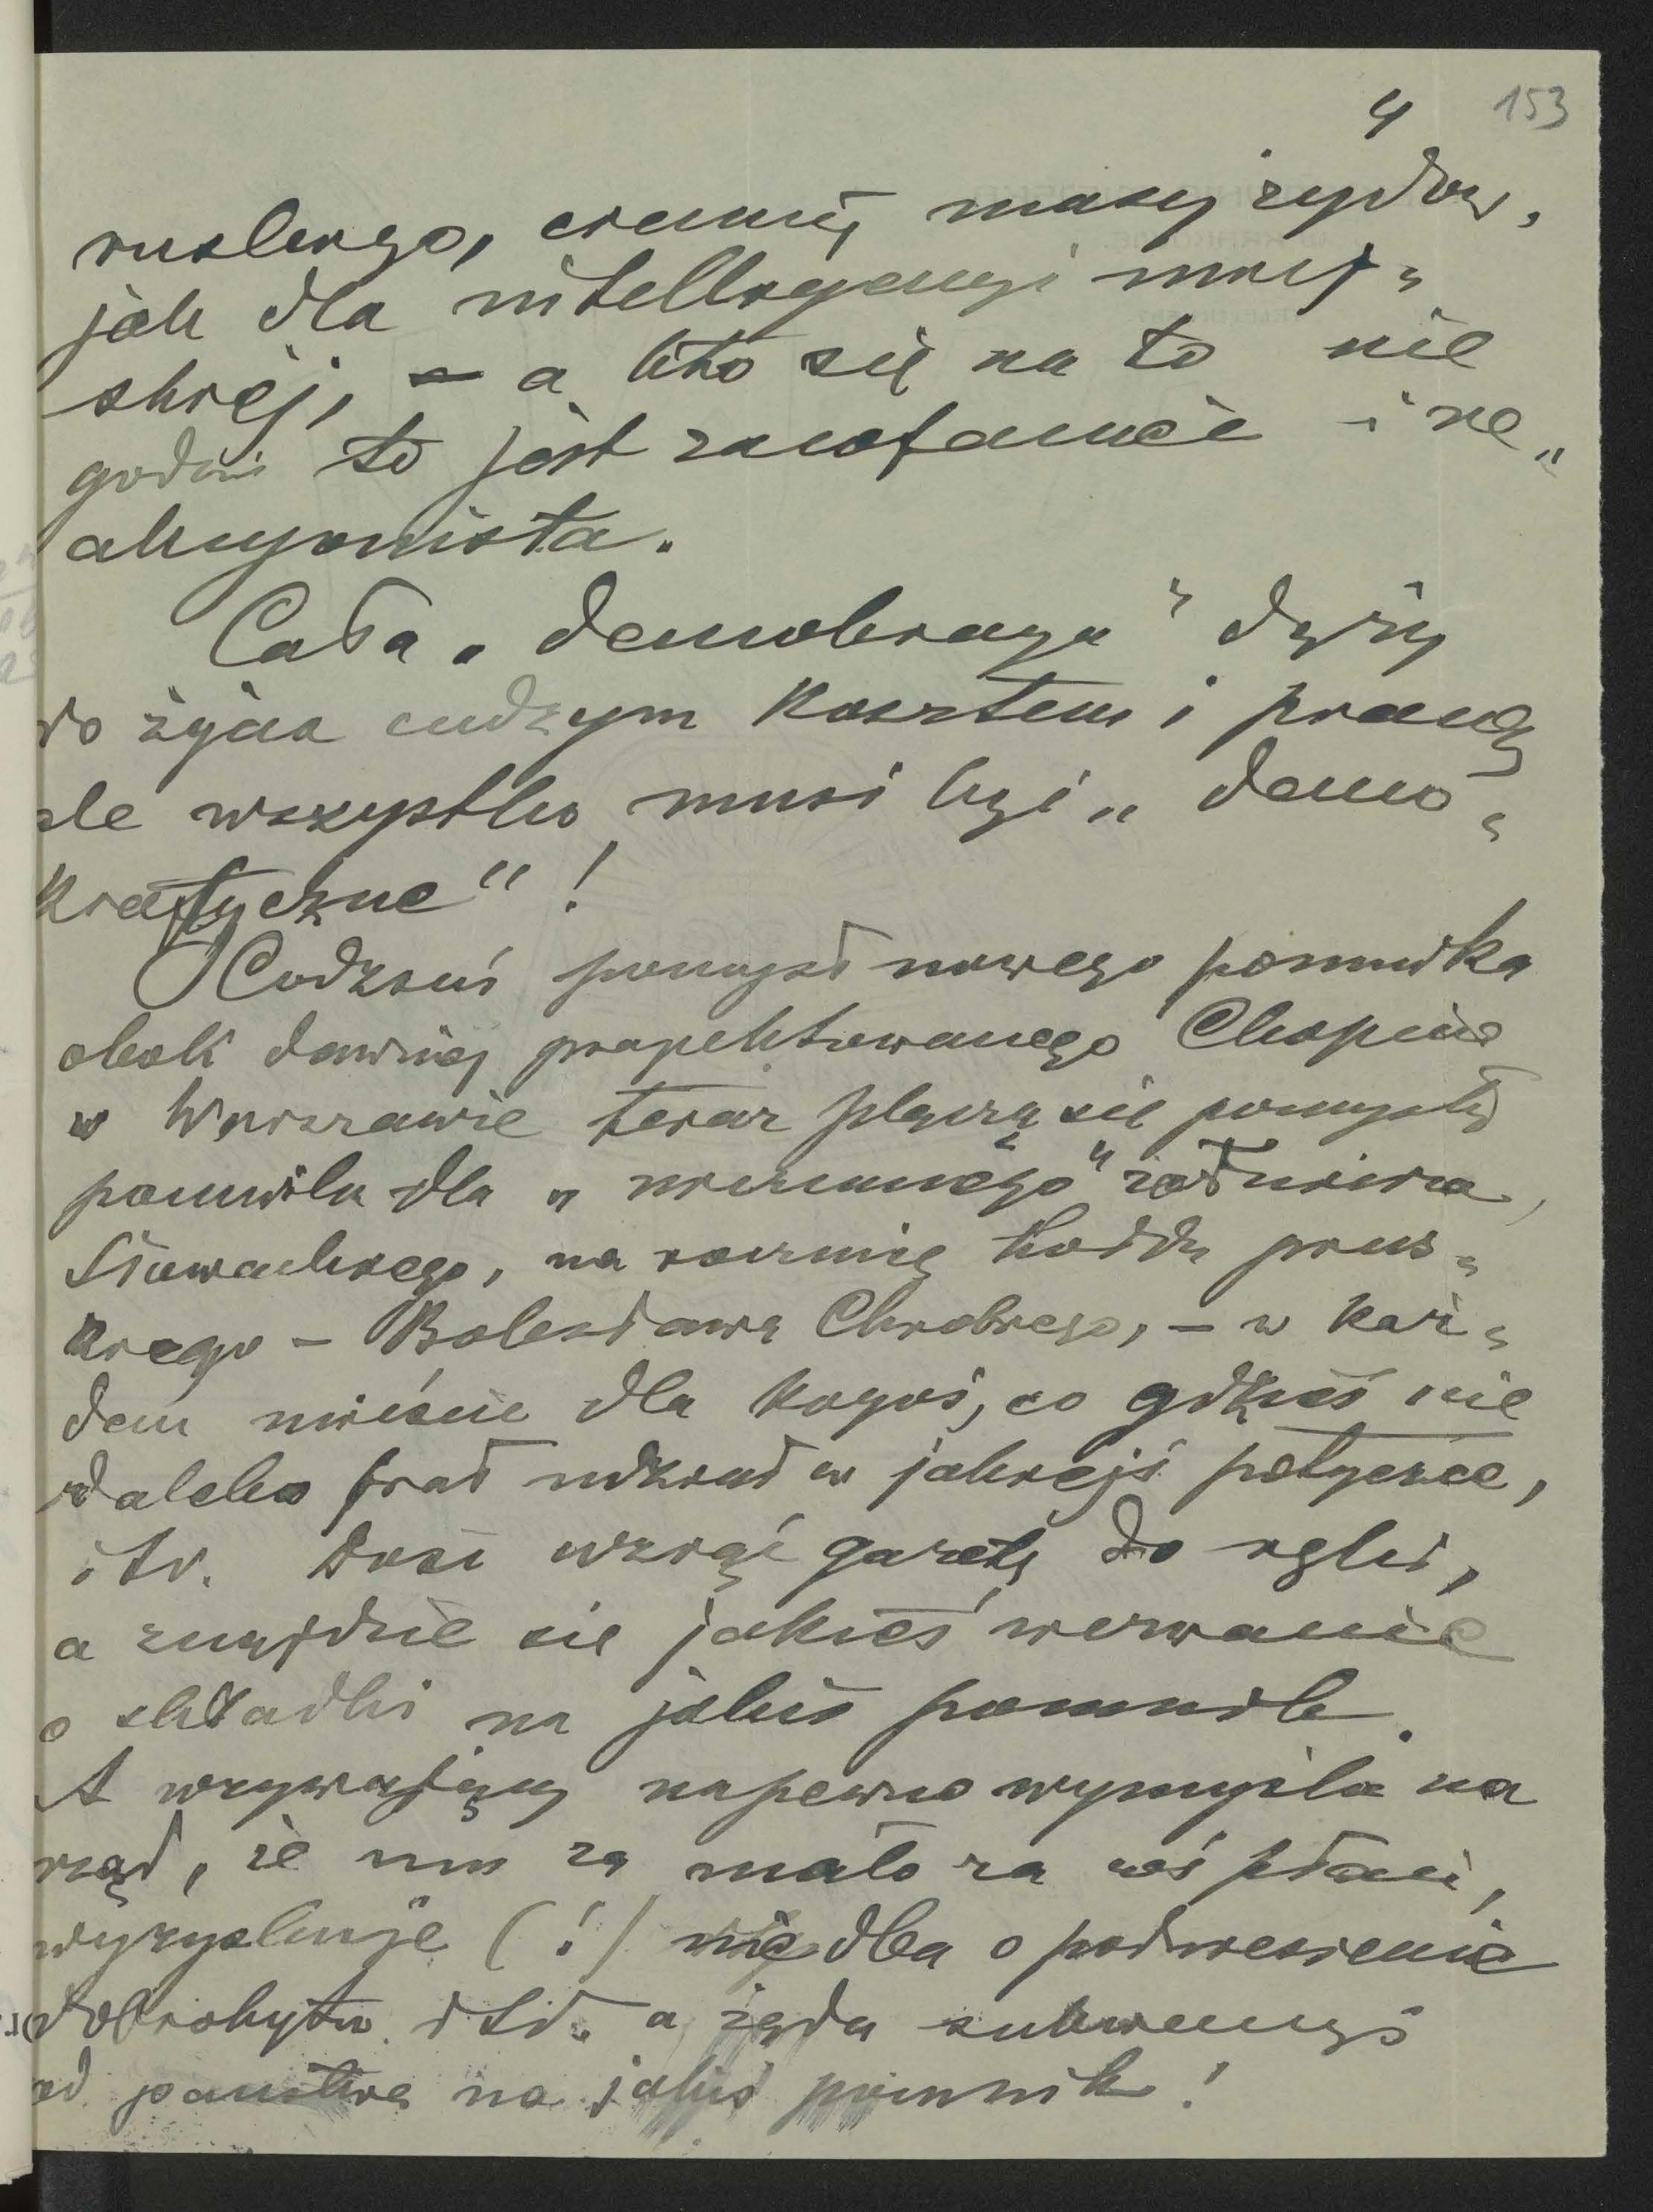 4 153
ruskiego, ciemnej masy żydów,
jak dla intelligencyi miej„
skiej, – a kto się na to nie
godzi to jest zacofaniec i re„
akcyonista.
Cała „demokracya" dąży
do życia cudzym kosztem i pracą
ale wszystko musi być „demo„
kratyczne"!
Codzień pomysł nowego pomnika
obok dawniej projektowanego Chopina
w Warszawie teraz plączą się pomysły
pomnika dla „nieznanego" żołnierza,
Słowackiego, na rocznicę hołdu prus„
kiego – Bolesława Chrobrego, – w każ„
dem mieście dla kogoś, co gdzieś nie
daleko brał udział w jakiejś potyczce,
itd. Dość wziąć gazetę do ręki,
a znajdzie się jakieś wezwanie
o składki na jakiś pomnik.
A wzywający napewno wymyśla na
rząd, że mu za mało za coś płaci,
wyzyskuje (!) nie dba o podniesienie
dobrobytu itd. a żąda subwencyi
od państwa na jakiś pomnik!